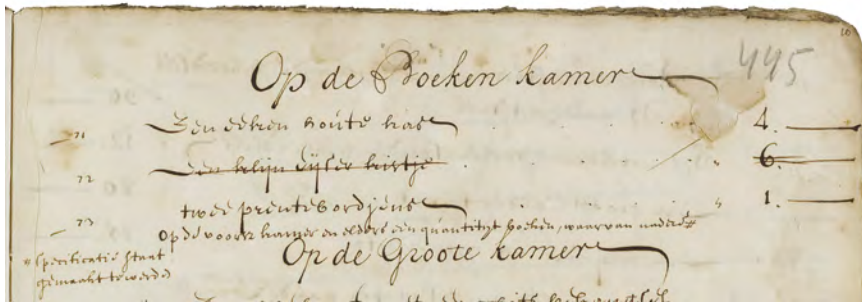 10
445
Op de Boeken kamer
71 Een eeken houte kas 4. —
72 Een klijn eijser kistje 6. —
73 twee prentebordjens 1. —
Op de voors kamer en elders een quantityt boeken, waarvan nadere
specificatie staat
gemaakt te werden
Op de Groote kamer